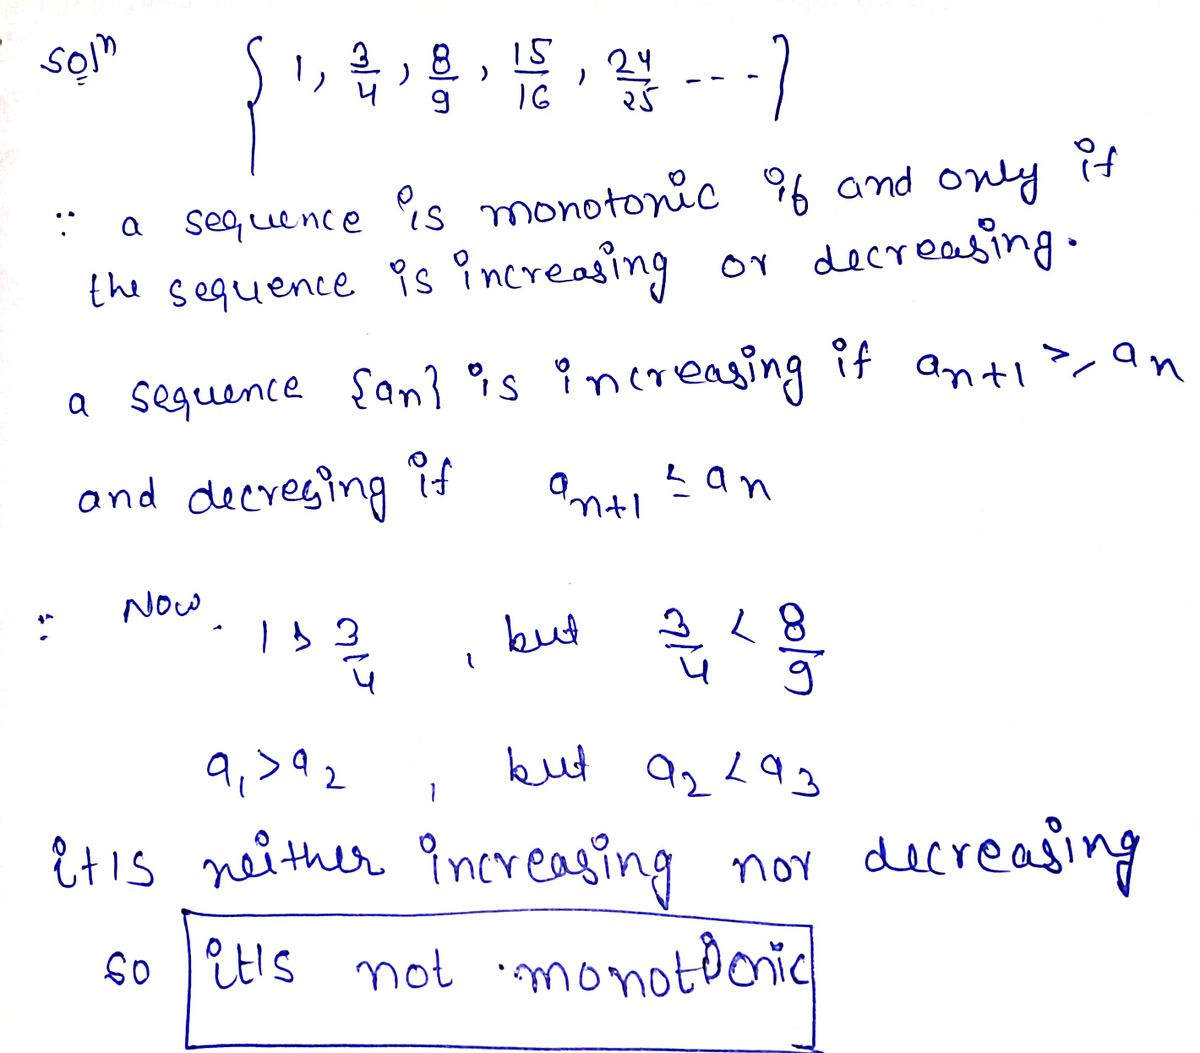 Soln { 1, 3/4, 8/9, 15/16, 24/25 ---- }
∵ a sequence is monotonic if and only if
the sequence is increasing or decreasing.
a sequence {an} is increasing if an+1 ≥ an
and decresing if an+1 ≤ an
∵ Now. 1 > 3/4, but 3/4 < 8/9
a1 > a2, but a2 < a3
it is neither increasing nor decreasing
so it is not monotonic